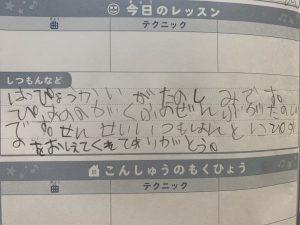 今日のレッスン
曲
テクニック
しつもんなど
はっぴょうかいがたのしみです。
ぴあののがくふのぜんぶがたのし
です。せんせいいつもほんとにぴあの
をおしえてくれてありがとう。
こんしゅうのもくひょう
曲
テクニック